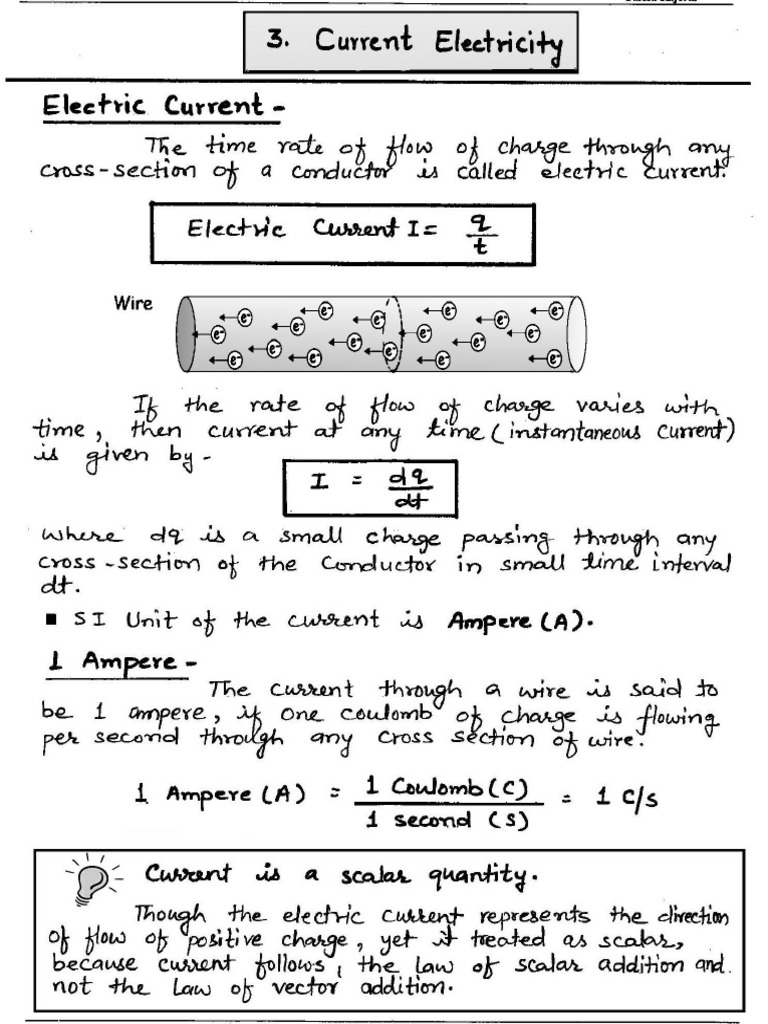 3. Current Electricity
Electric Current -
The time rate of flow of charge through any
cross-section of a conductor is called electric current.
Electric Current I = q/t
Wire
e⁻ e⁻ e⁻ e⁻ e⁻ e⁻
e⁻ e⁻ e⁻ e⁻
e⁻ e⁻ e⁻ e⁻ e⁻
e⁻ e⁻ e⁻ e⁻
If the rate of flow of charge varies with
time, then current at any time (instantaneous current)
is given by -
I = dq/dt
where dq is a small charge passing through any
cross-section of the Conductor in small time interval
dt.
■ SI Unit of the current is Ampere (A).
1 Ampere -
The current through a wire is said to
be 1 ampere, if one coulomb of charge is flowing
per second through any cross section of wire.
1 Ampere (A) = 1 Coulomb (C)/1 second (S) = 1 C/s
Current is a scalar quantity.
Though the electric current represents the direction
of flow of positive charge, yet it treated as scalar,
because current follows, the law of scalar addition and
not the law of vector addition.